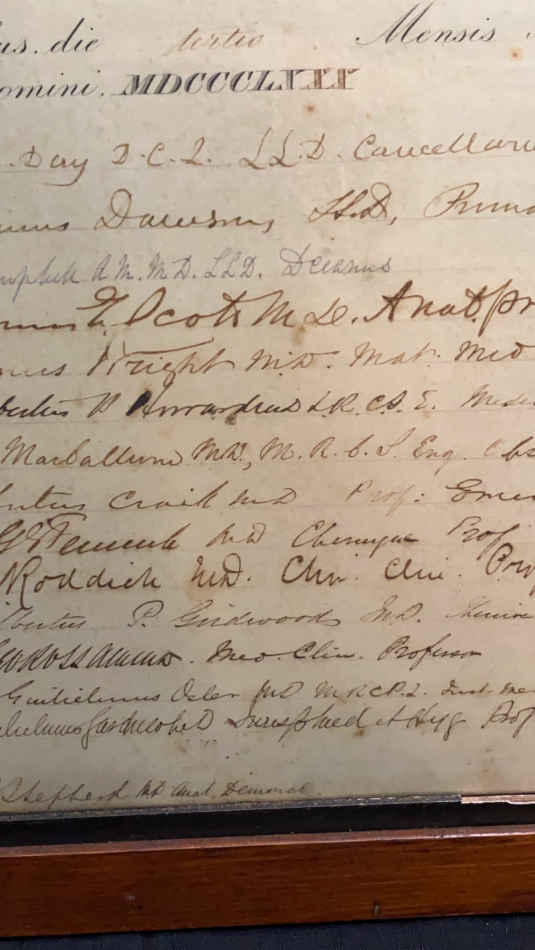 as. die tertio Mensis
omini. MDCCCLXXII
Day D.C.L. LL.D. Cancellarius
Dawson, LL.D,
A M. M D. LLD. Decanus
E. Scott M D. Anat. pr
Wright M.D. Mat. Med
P. Howard L.R.C.S. E. Med
MacCallum MD, M.R.C.S. Eng. Obs
Craik MD Prof: Emer
G E Fenwick MD Chirurgiae Prof
Roddick MD. Chir. Clin. Prof
P. Girdwood MD.
Geo Ross AM MD. Med. Clin. Professor
Guilielmus Osler MD MRCP.L. Inst. Med
Gardner MD Jurisprud et Hyg Prof
Shepherd MD Anat. Demonst.